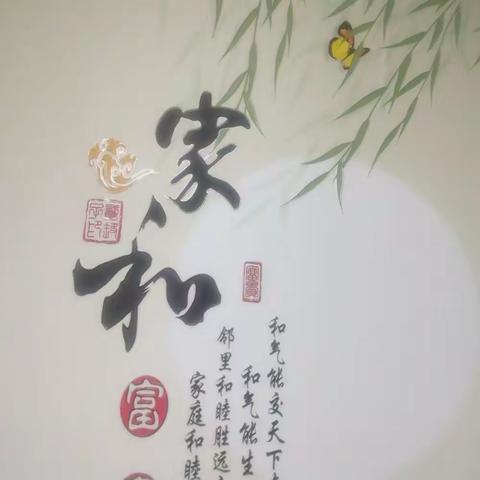 家和
富
富貴
和气能交天下
和气能生
邻里和睦胜远
家庭和睦